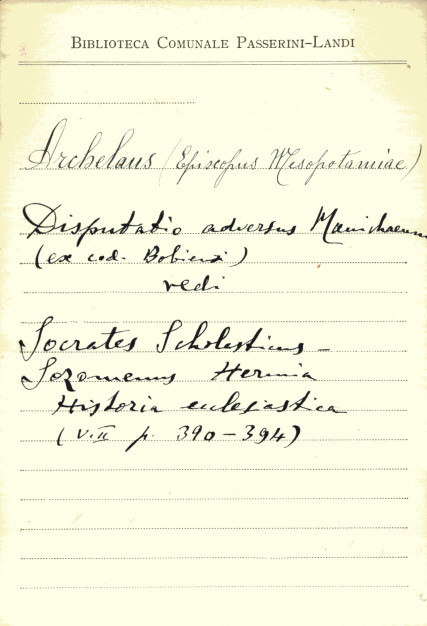 BIBLIOTECA COMUNALE PASSERINI-LANDI
Archelaus (Episcopus Mesopotamiae)
Disputatio adversus Manichaeum
(ex cod. Bobiensi)
vedi
Socrates Scholasticus –
Sozomenus Hermia
Historia ecclesiastica
(V. II p. 390–394)